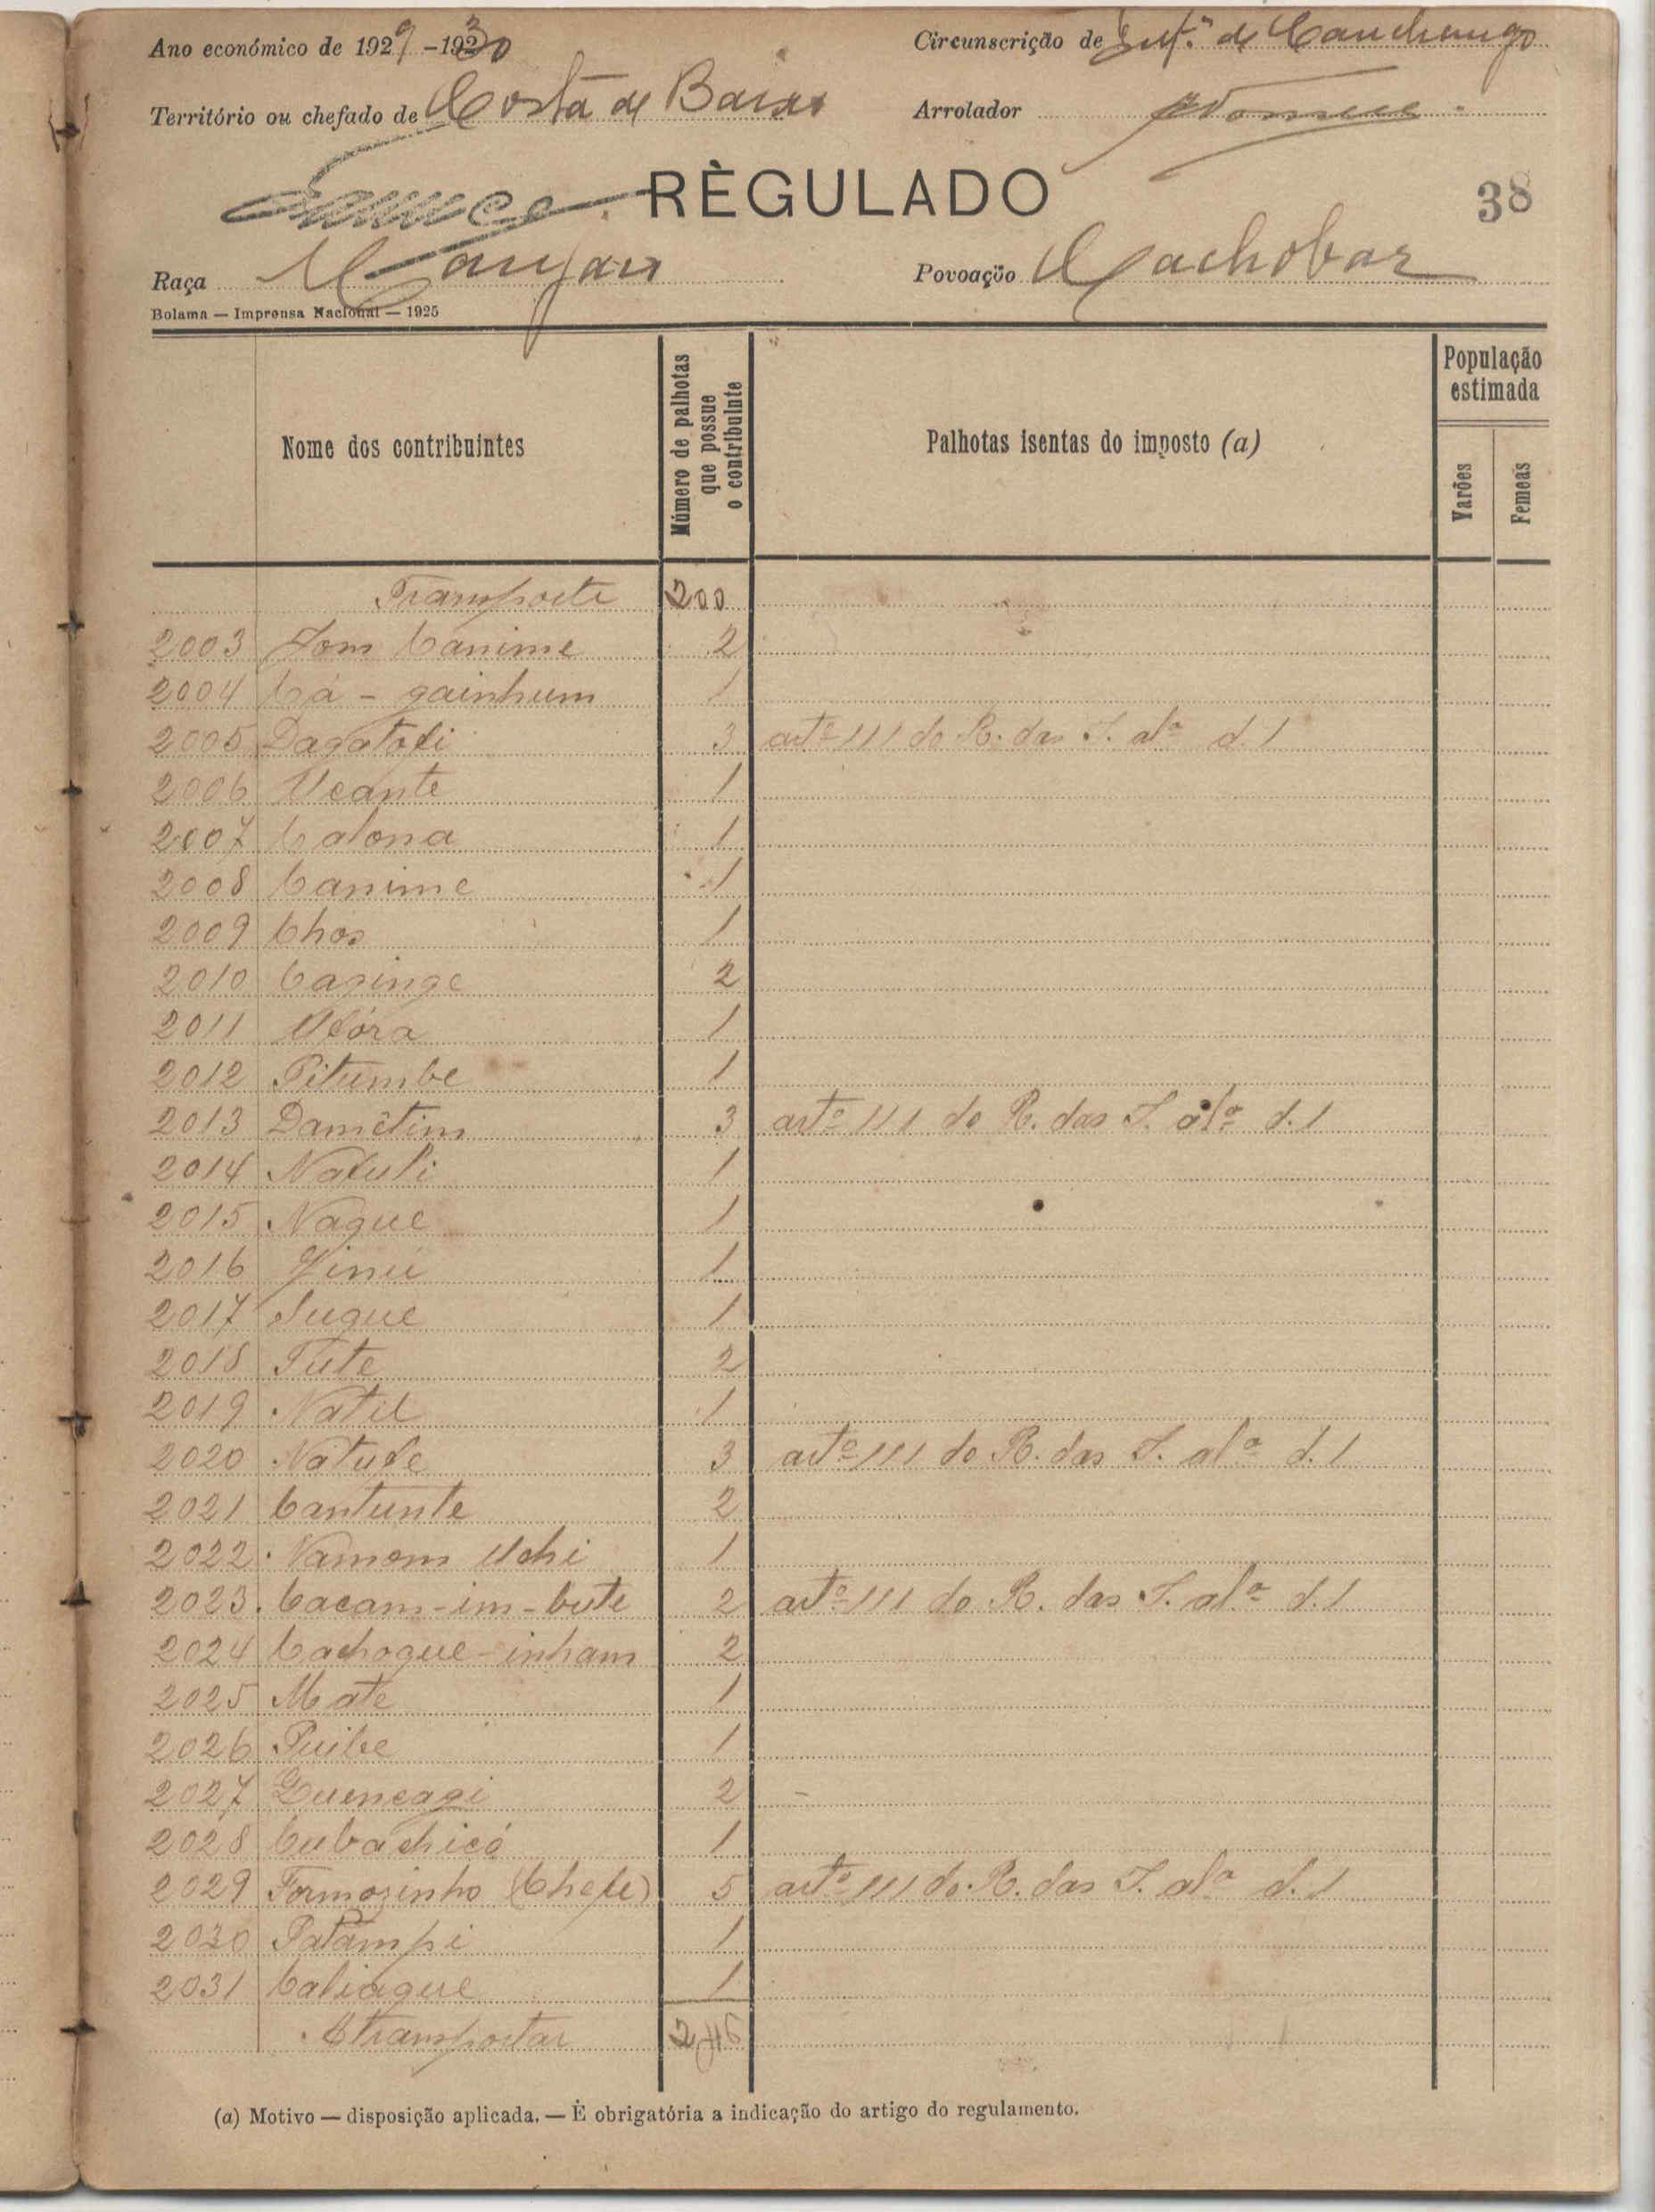 Ano económico de 1929-1930
Circunscrição de Int.ª de Canchungo
Território ou chefado de Costa de Baixo
Arrolador
RÈGULADO
38
Raça Manjaca
Povoação Cachobar
Bolama — Imprensa Nacional — 1925
Nome dos contribuintes
Número de palhotas que possue o contribuinte
Palhotas isentas do imposto (a)
População estimada
Varões
Femeas
Transporte 200
2003 Jom Canime 2
2004 Cá - gainhum 1
2005 3 artº 111 do R. das I. alª d.1
2006 Ucante 1
2007 Calona 1
2008 Canime 1
2009 Chos 1
2010 Caginge 2
2011 1
2012 Pitumbe 1
2013 Damêtim 3 artº 111 do R. das I. alª d.1
2014 Natuli 1
2015 Naque 1
2016 1
2017 Suque 1
2018 Tute 2
2019 1
2020 3 artº 111 do R. das I. alª d.1
2021 Cantunte 2
2022 Namom Uchi 1
2023 Cacam-im-bute 2 artº 111 do R. das I. alª d.1
2024 Cachogue-inham 2
2025 Mate 1
2026 Puibe 1
2027 2 -
2028 Cubachicó 1
2029 Formozinho (Chefe) 5 artº 111 do R. das I. alª d.1
2030 Patampi 1
2031 Caliaque 1
A transportar 245
(a) Motivo — disposição aplicada. — É obrigatória a indicação do artigo do regulamento.